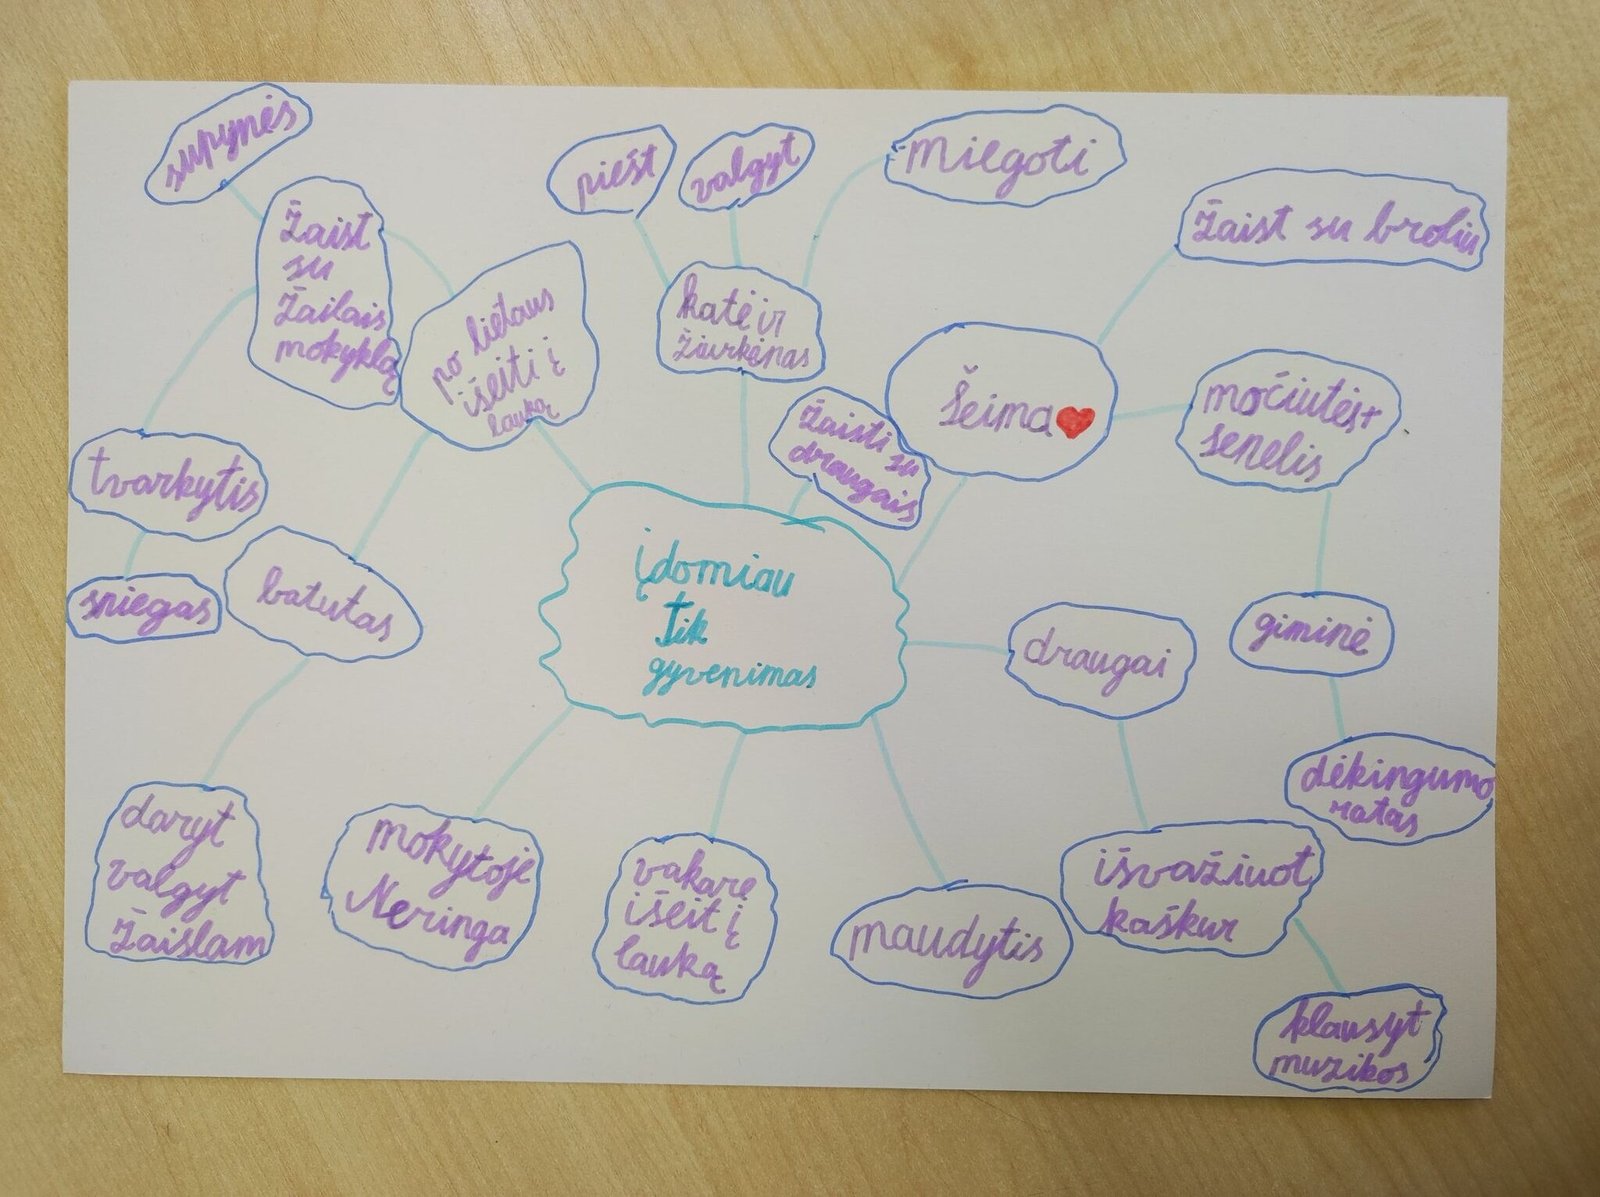 supynės
piešt
valgyt
miegoti
žaist su broliu
žaist
su
žailais
mokyklą
po lietaus
išeiti į
lauką
katė ir
žiurkėnas
žaisti su
draugais
šeima
močiutės+
senelis
tvarkytis
sniegas
batutas
įdomiau
Tik
gyvenimas
draugai
giminė
dėkingumo
ratas
daryt
valgyt
žaislam
mokytoje
Neringa
vakare
išeit į
lauką
maudytis
išvažiuot
kaškur
klausyt
muzikos